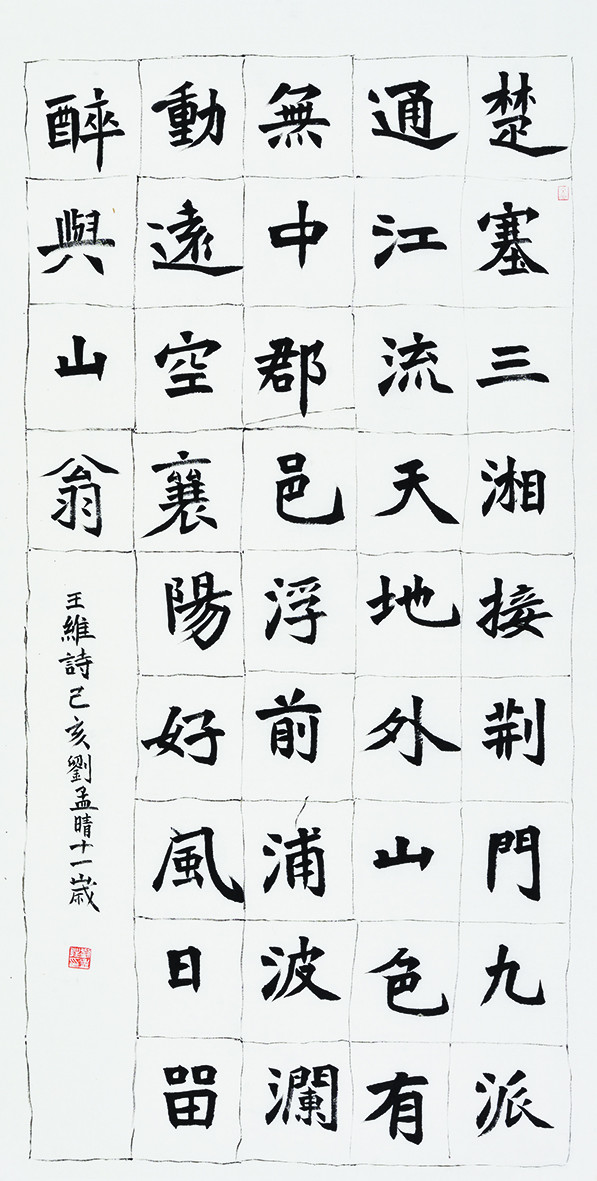 楚塞三湘接荆門九派
通江流天地外山色有
無中郡邑浮前浦波瀾
動遠空襄陽好風日畱
醉與山翁
王維詩己亥劉孟晴十一歲